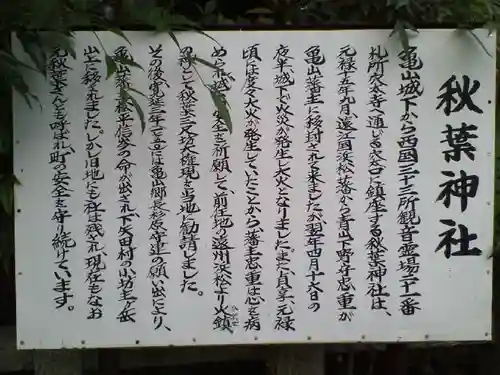 秋葉神社
亀山城下から西国三十三所観音霊場二十一番
札所穴太寺へ通じる穴口に鎮座する秋葉神社は、
元禄十五年九月、遠江国浜松藩から青山下野守忠重が
亀山藩主に移封されて来ましたが、翌年四月十六日の
夜半城下で火災が発生し大火となりました。また貞享、元禄
頃は度々大火が発生していたことから藩主忠重は心を病
められ城下の安全を祈願して、前任地の遠州浜松より火鎮
の神として秋葉三尺坊大権現を当地に勧請しました。
その後寛延二年二月には亀山郷長杉原守連の願い出により、
亀山藩主松平信岑の命が出され下矢田村の小坊主ヶ岳
山上に移されました。しかし旧地にも社は残され現在もなお
元秋葉さんとも呼ばれ、町の安全を守り続けています。